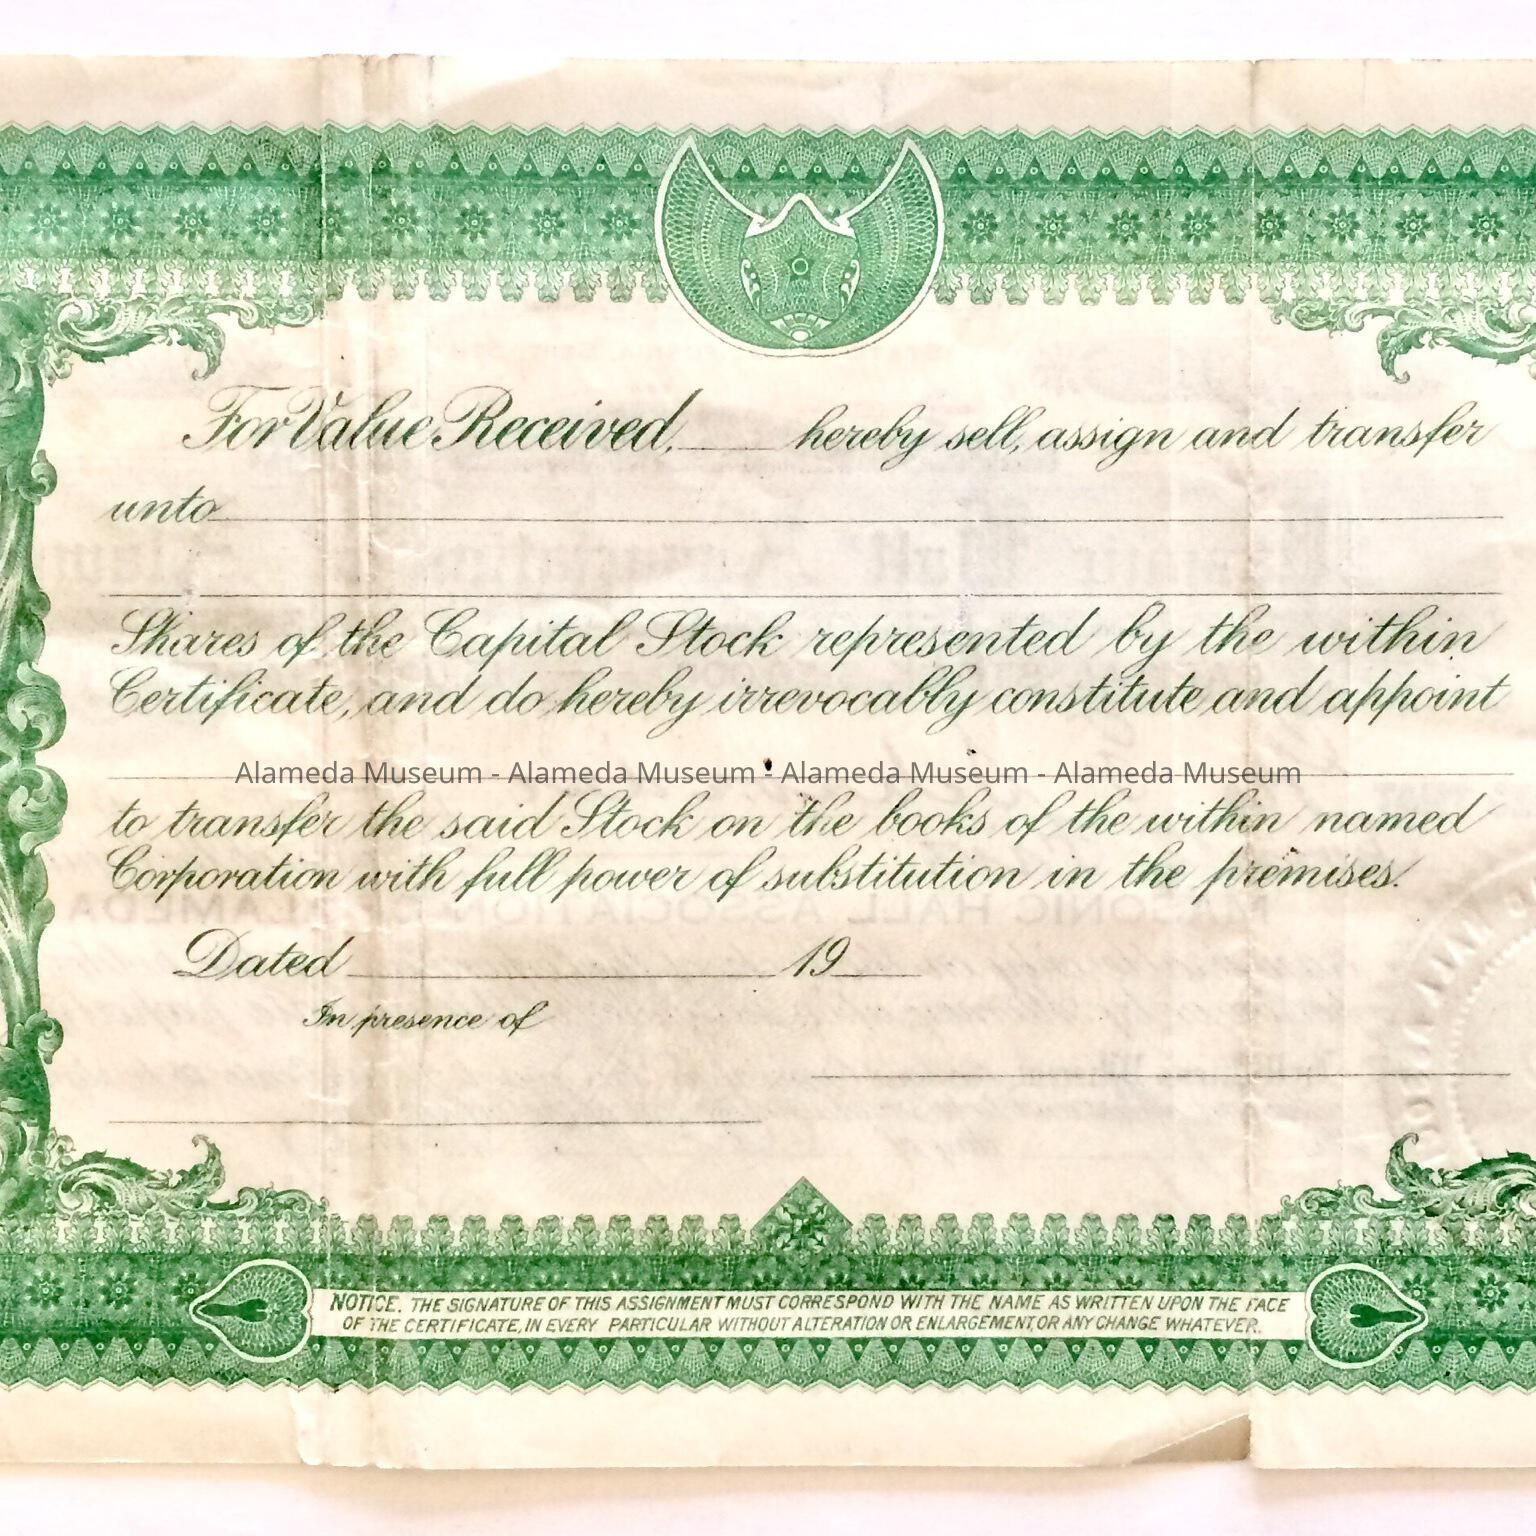 For Value Received, hereby sell, assign and transfer
unto
Shares of the Capital Stock represented by the within
Certificate, and do hereby irrevocably constitute and appoint
Alameda Museum - Alameda Museum - Alameda Museum - Alameda Museum
to transfer the said Stock on the books of the within named
Corporation with full power of substitution in the premises.
MASONIC HALL ASSOCIATION OF ALAMEDA
Dated 19
In presence of
NOTICE. THE SIGNATURE OF THIS ASSIGNMENT MUST CORRESPOND WITH THE NAME AS WRITTEN UPON THE FACE
OF THE CERTIFICATE, IN EVERY PARTICULAR WITHOUT ALTERATION OR ENLARGEMENT, OR ANY CHANGE WHATEVER.